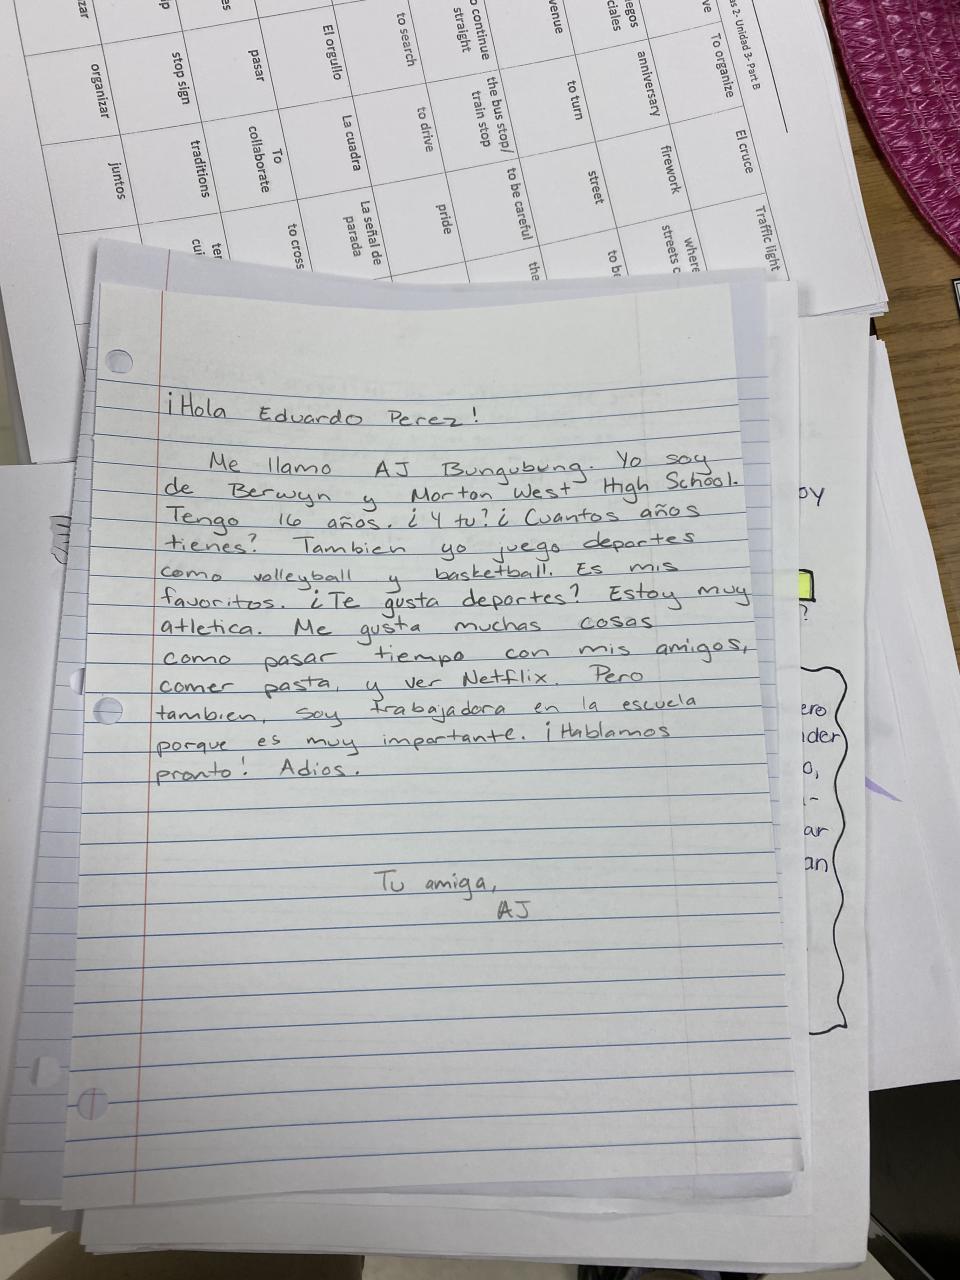 as 2- Unidad 3- Part B
ve
To organize
El cruce
Traffic light
egos
ciales
anniversary
firework
where
streets c
venue
to turn
street
to be
o continue
straight
the bus stop/
train stop
to be careful
the
to search
to drive
pride
El orgullo
La cuadra
La señal de
parada
es
pasar
To
collaborate
to cross
ip
stop sign
traditions
ter
cui
zar
organizar
juntos
¡Hola Eduardo Perez!
Me llamo AJ Bungubung. Yo soy
de Berwyn y Morton West High School.
Tengo 16 años. ¿Y tu? ¿Cuantos años
tienes? Tambien yo juego deportes
como volleyball y basketball. Es mis
favoritos. ¿Te gusta deportes? Estoy muy
atletica. Me gusta muchas cosas
como pasar tiempo con mis amigos,
comer pasta, y ver Netflix. Pero
tambien, soy trabajadora en la escuela
porque es muy importante. ¡Hablamos
pronto! Adios.
Tu amiga,
AJ
oy
?
ero
der
o,
-
ar
an